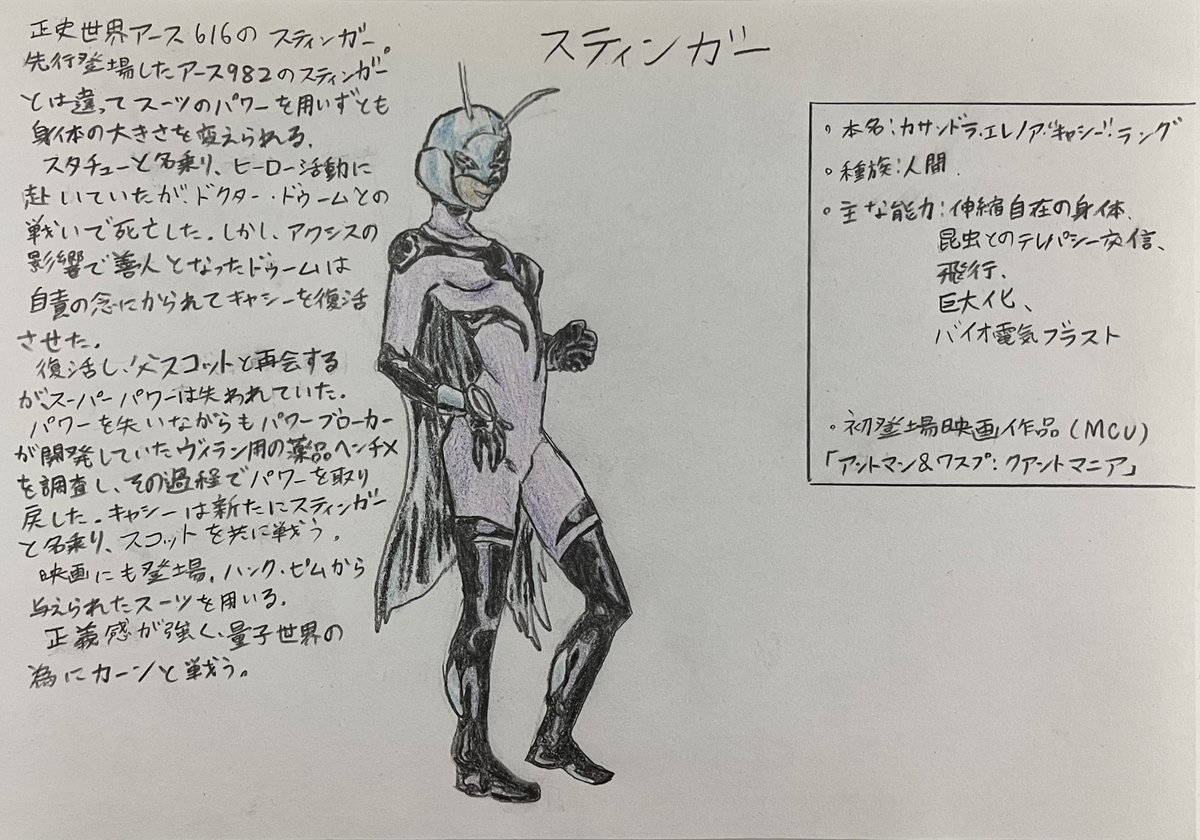 スティンガー
正史世界アース616のスティンガー。
先行登場したアース982のスティンガー
とは違ってスーツのパワーを用いずとも
身体の大きさを変えられる。
スタチューと名乗り、ヒーロー活動に
赴いていたが、ドクター・ドゥームとの
戦いで死亡した。しかし、アクシスの
影響で善人となったドゥームは
自責の念にかられてキャシーを復活
させた。
復活し、父スコットと再会する
が、スーパーパワーは失われていた。
パワーを失いながらもパワーブローカー
が開発していたヴィラン用の薬品ヘンチX
を調査し、その過程でパワーを取り
戻した。キャシーは新たにスティンガー
と名乗り、スコットを共に戦う。
映画にも登場。ハンク・ピムから
与えられたスーツを用いる。
正義感が強く、量子世界の
為にカーンと戦う。
・本名:カサンドラ・エレノア・"キャシー"・ラング
・種族:人間.
・主な能力:伸縮自在の身体、
昆虫とのテレパシー交信、
飛行、
巨大化、
バイオ電気ブラスト
・初登場映画作品(MCU)
「アントマン&ワスプ:クアントマニア」